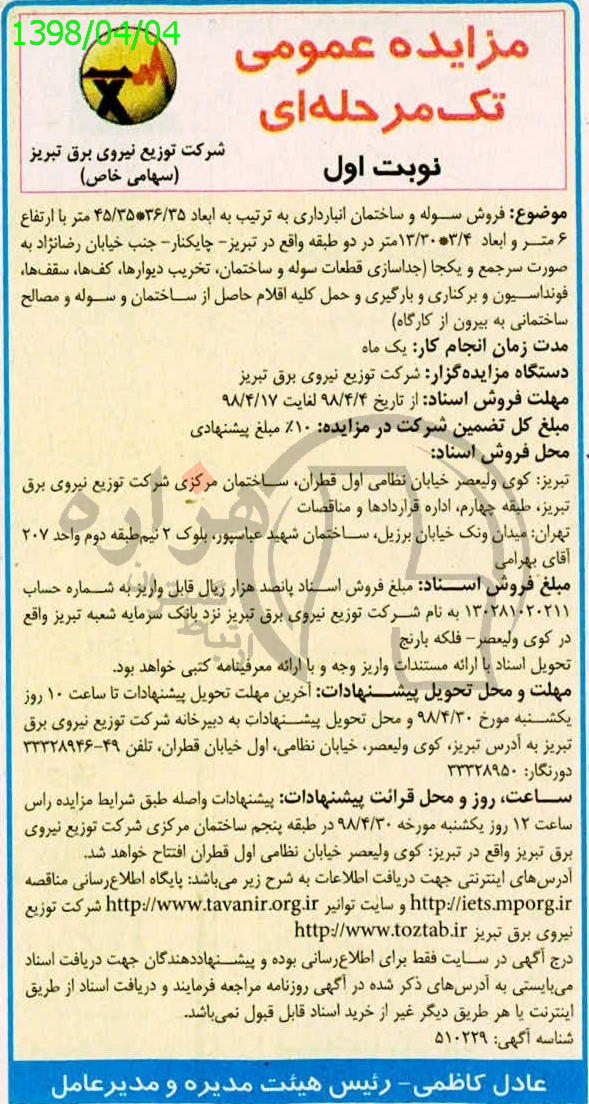 1398/04/04
مزایده عمومی
تک‌مرحله‌ای
نوبت اول
شرکت توزیع نیروی برق تبریز
(سهامی خاص)
موضوع: فروش سوله و ساختمان انبارداری به ترتیب به ابعاد ۳۶/۳۵*۴۵/۳۵ متر با ارتفاع
۶ متر و ابعاد ۳/۴*۱۳/۳۰متر در دو طبقه واقع در تبریز- چایکنار- جنب خیابان رضانژاد به
صورت سرجمع و یکجا (جداسازی قطعات سوله و ساختمان، تخریب دیوارها، کف‌ها، سقف‌ها،
فونداسیون و برکناری و بارگیری و حمل کلیه اقلام حاصل از ساختمان و سوله و مصالح
ساختمانی به بیرون از کارگاه)
مدت زمان انجام کار: یک ماه
دستگاه مزایده‌گزار: شرکت توزیع نیروی برق تبریز
مهلت فروش اسناد: از تاریخ ۹۸/۴/۴ لغایت ۹۸/۴/۱۷
مبلغ کل تضمین شرکت در مزایده: ۱۰٪ مبلغ پیشنهادی
محل فروش اسناد:
تبریز: کوی ولیعصر خیابان نظامی اول قطران، ساختمان مرکزی شرکت توزیع نیروی برق
تبریز، طبقه چهارم، اداره قراردادها و مناقصات
تهران: میدان ونک خیابان برزیل، ساختمان شهید عباسپور، بلوک ۲ نیم‌طبقه دوم واحد ۲۰۷
آقای بهرامی
مبلغ فروش اسناد: مبلغ فروش اسناد پانصد هزار ریال قابل واریز به شماره حساب
۱۳۰۲۸۱۰۲۰۲۱۱ به نام شرکت توزیع نیروی برق تبریز نزد بانک سرمایه شعبه تبریز واقع
در کوی ولیعصر- فلکه بارنج
تحویل اسناد با ارائه مستندات واریز وجه و با ارائه معرفینامه کتبی خواهد بود.
مهلت و محل تحویل پیشنهادات: آخرین مهلت تحویل پیشنهادات تا ساعت ۱۰ روز
یکشنبه مورخ ۹۸/۴/۳۰ و محل تحویل پیشنهادات به دبیرخانه شرکت توزیع نیروی برق
تبریز به آدرس تبریز، کوی ولیعصر، خیابان نظامی، اول خیابان قطران، تلفن ۴۹-۳۳۳۲۸۹۴۶
دورنگار: ۳۳۳۲۸۹۵۰
ساعت، روز و محل قرائت پیشنهادات: پیشنهادات واصله طبق شرایط مزایده راس
ساعت ۱۲ روز یکشنبه مورخه ۹۸/۴/۳۰ در طبقه پنجم ساختمان مرکزی شرکت توزیع نیروی
برق تبریز واقع در تبریز: کوی ولیعصر خیابان نظامی اول قطران افتتاح خواهد شد.
آدرس‌های اینترنتی جهت دریافت اطلاعات به شرح زیر می‌باشد: پایگاه اطلاع‌رسانی مناقصه
http://iets.mporg.ir و سایت توانیر http://www.tavanir.org.ir شرکت توزیع
نیروی برق تبریز http://www.toztab.ir
درج آگهی در سایت فقط برای اطلاع‌رسانی بوده و پیشنهاددهندگان جهت دریافت اسناد
می‌بایستی به آدرس‌های ذکر شده در آگهی روزنامه مراجعه فرمایند و دریافت اسناد از طریق
اینترنت یا هر طریق دیگر غیر از خرید اسناد قابل قبول نمی‌باشد.
شناسه آگهی: ۵۱۰۲۲۹
عادل کاظمی- رئیس هیئت مدیره و مدیرعامل
هزاره
ارتباط